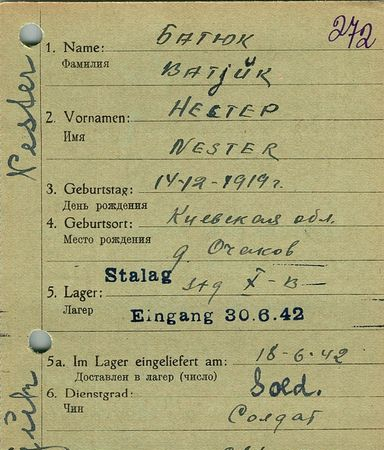 272
Nester
1. Name: БАТЮК
Фамилия
BATJÚK
2. Vornamen: НЕСТЕР
Имя
NESTER
3. Geburtstag: 14-12-1919г.
День рождения
4. Geburtsort: Киевская обл.
Место рождения
д. Очаков
Stalag
5. Lager: X-B
Лагер
Eingang 30.6.42
5a. Im Lager eingeliefert am: 18-6-42
Доставлен в лагер (число)
6. Dienstgrad: Sold.
Чин
Солдат